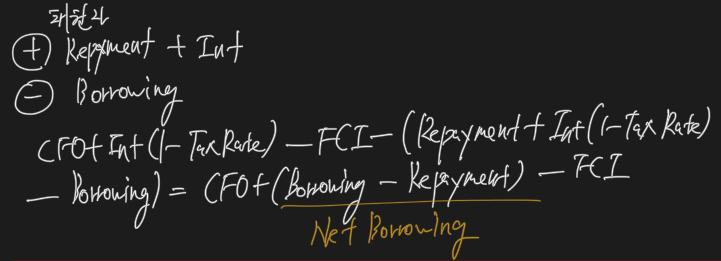 채권자
⊕ Repayment + Int
⊖ Borrowing
CFO+Int(1-Tax Rate) - FCI - (Repayment + Int(1-Tax Rate)
- Borrowing) = CFO+(Borrowing - Repayment) - FCI
Net Borrowing